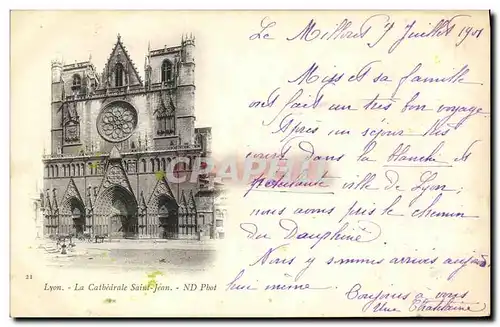 Le Millery 7 Juillet 1901
Miss et sa famille
ont fait un très bon voyage
Après un séjour très
court dans la blanche et
ville de Lyon,
nous avons pris le chemin
du Dauphiné
Nous y sommes arrivés aujourd'
hui même
21
Lyon. - La Cathédrale Saint-Jean. - ND Phot
CPARAMA